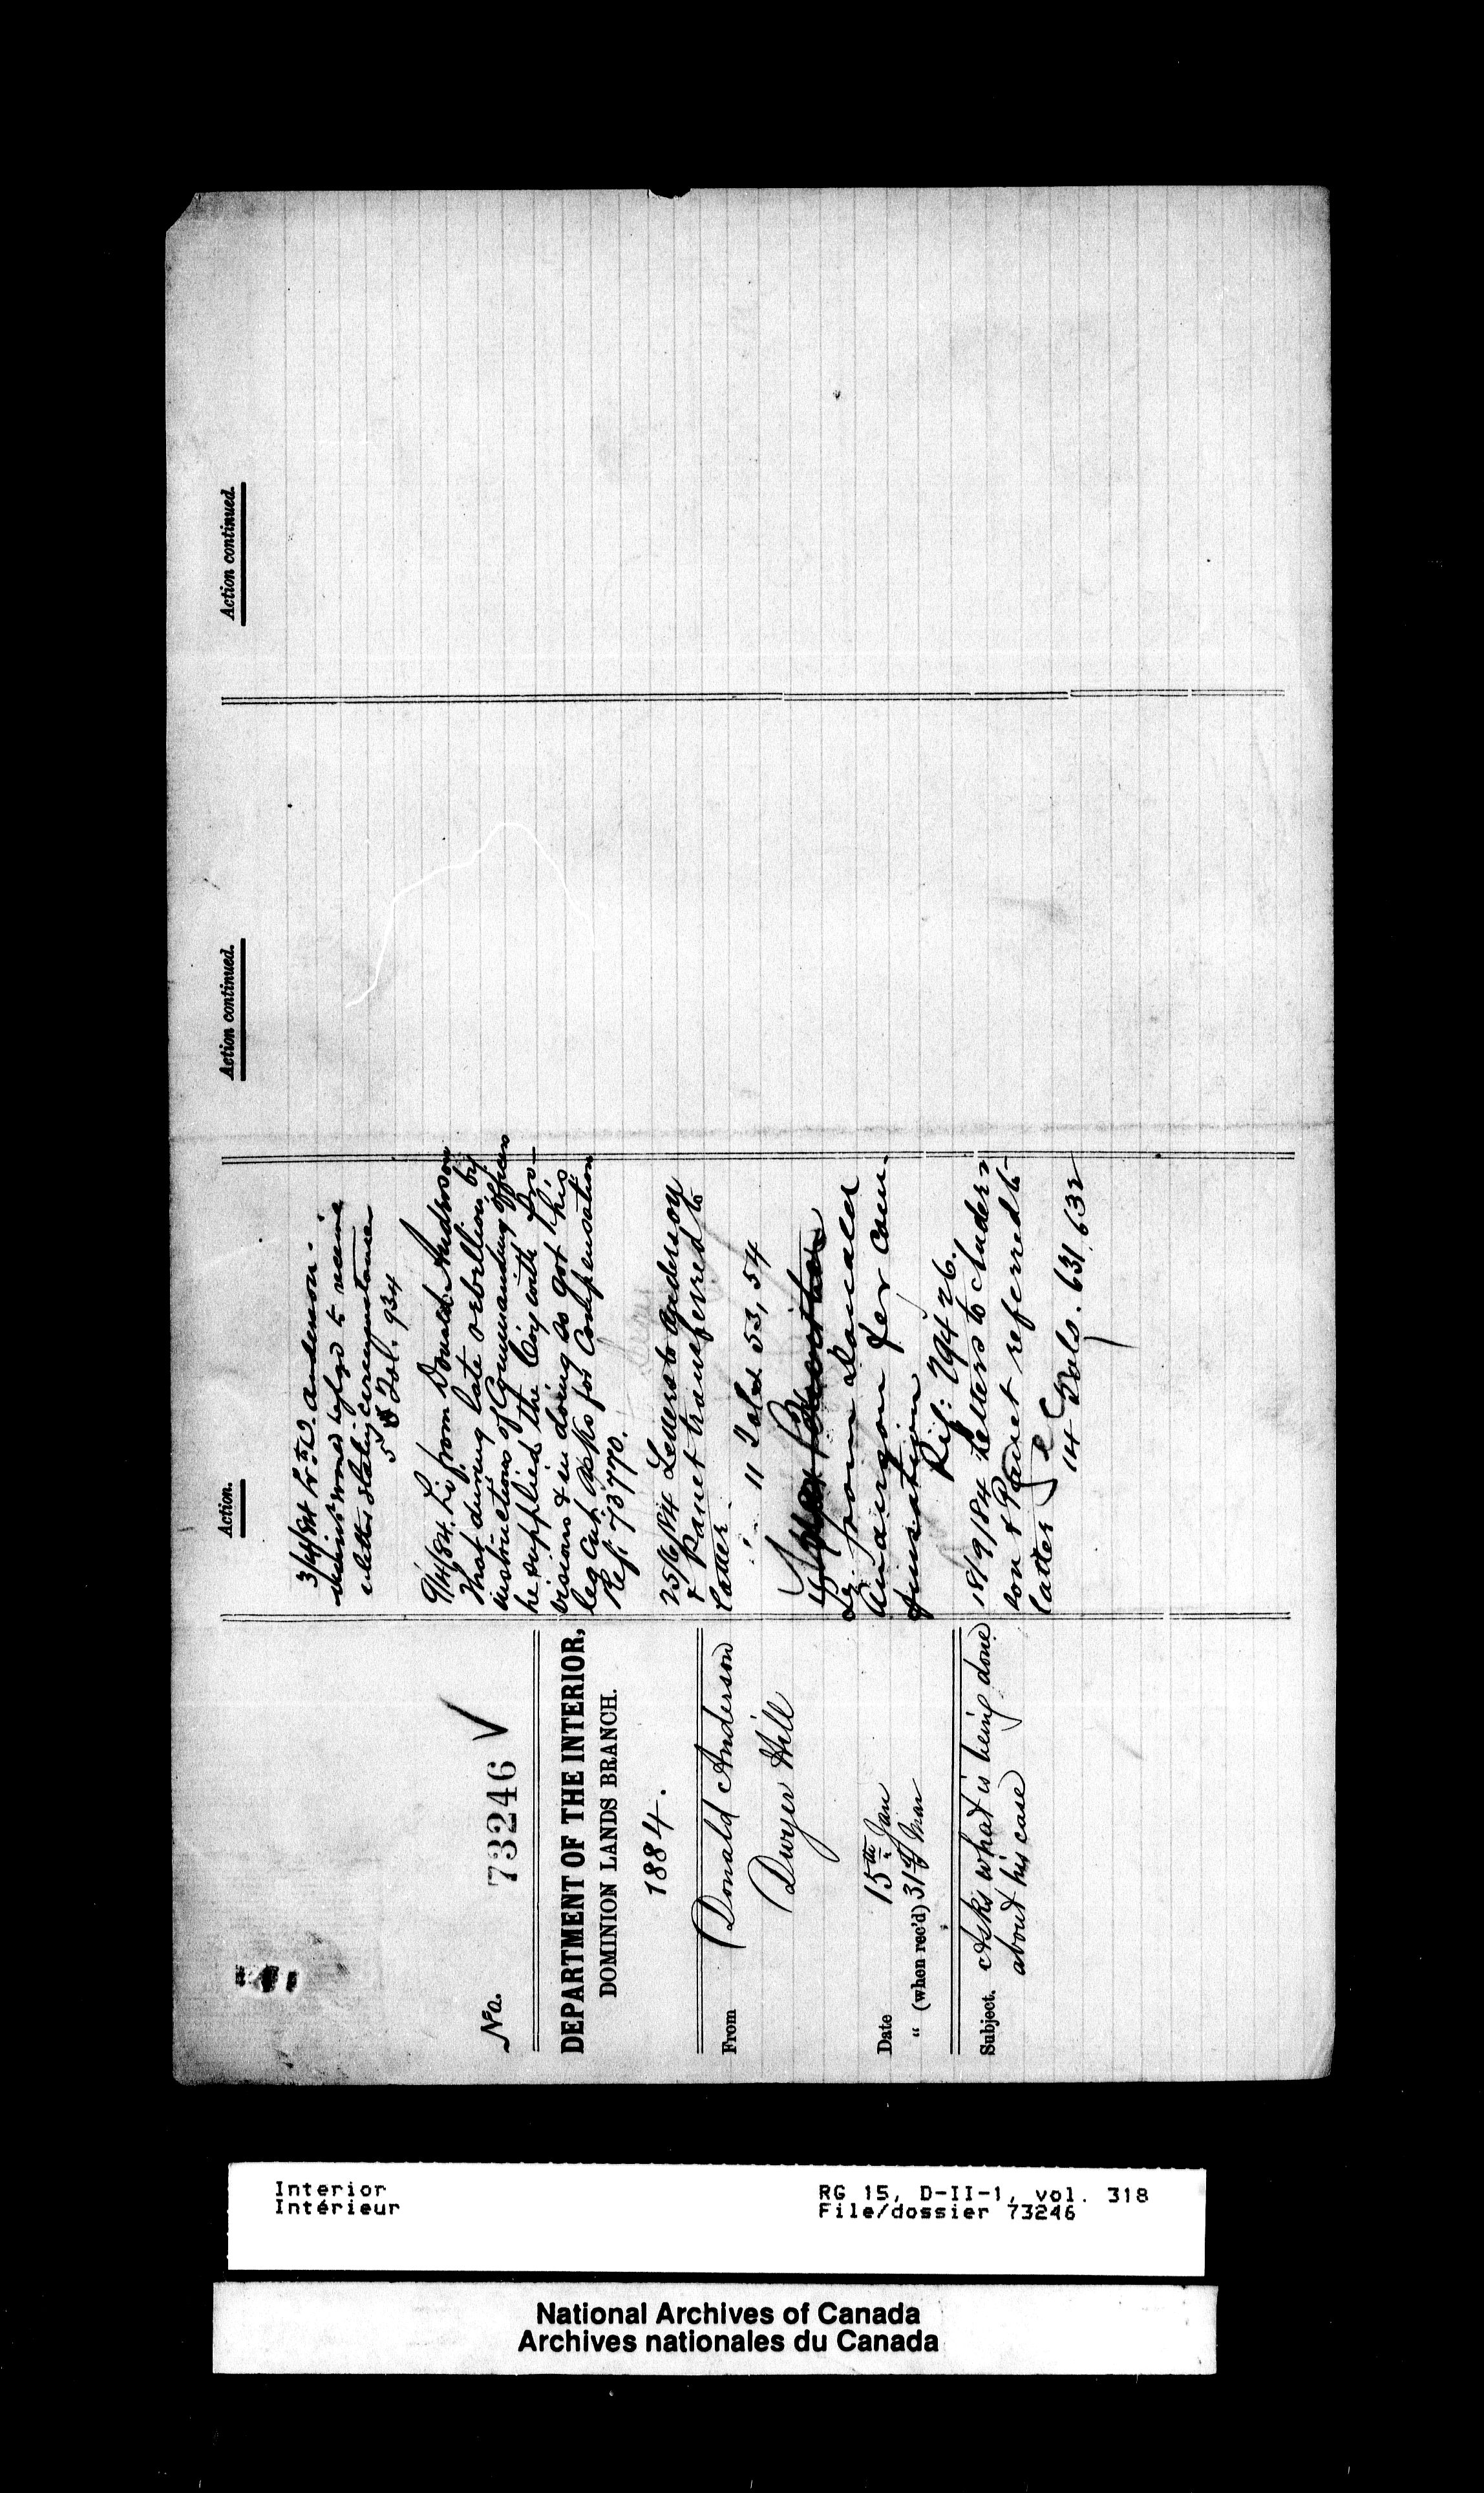 No. 73246 ✓
DEPARTMENT OF THE INTERIOR,
DOMINION LANDS BRANCH.
1884.
From Donald Anderson
Dwyer Hill
Date 15th Jan
" (when rec'd) 31st Mar
Subject. Asks what is being done
about his case
Action.
3/4/84 Lr to D. Anderson.
to receive
letter stating circumstances
5 Fol. 934
9/4/84. Lr from Donald Anderson
That during late rebellion by
instructions of Commanding Officer
he supplied the Coy with Pro-
visions & in doing so got his
leg cut. Asks for Compensation
Ref: 73770.
25/6/84 Letters to Anderson
& Panet transferred to
latter
" 11 Fol 53, 54
Lr from Donald
Anderson for Com-
pensation
Ref: 79426.
18/9/84 Letters to Ander-
son & Panet referred to
latter
14 Fols. 631, 632
Action continued.
Action continued.
Interior
Intérieur
RG 15, D-II-1, vol. 318
File/dossier 73246
National Archives of Canada
Archives nationales du Canada